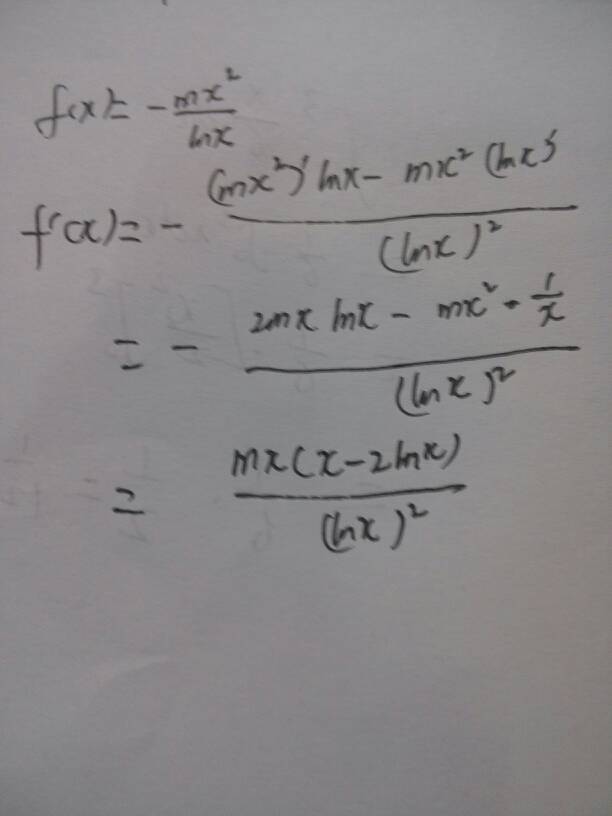 f(x)= -\frac{mx^2}{lnx}
f'(x)= - \frac{(mx^2)' lnx - mx^2 (lnx)'}{(lnx)^2}
= - \frac{2mx lnx - mx^2 · \frac{1}{x}}{(lnx)^2}
= \frac{mx(x-2lnx)}{(lnx)^2}